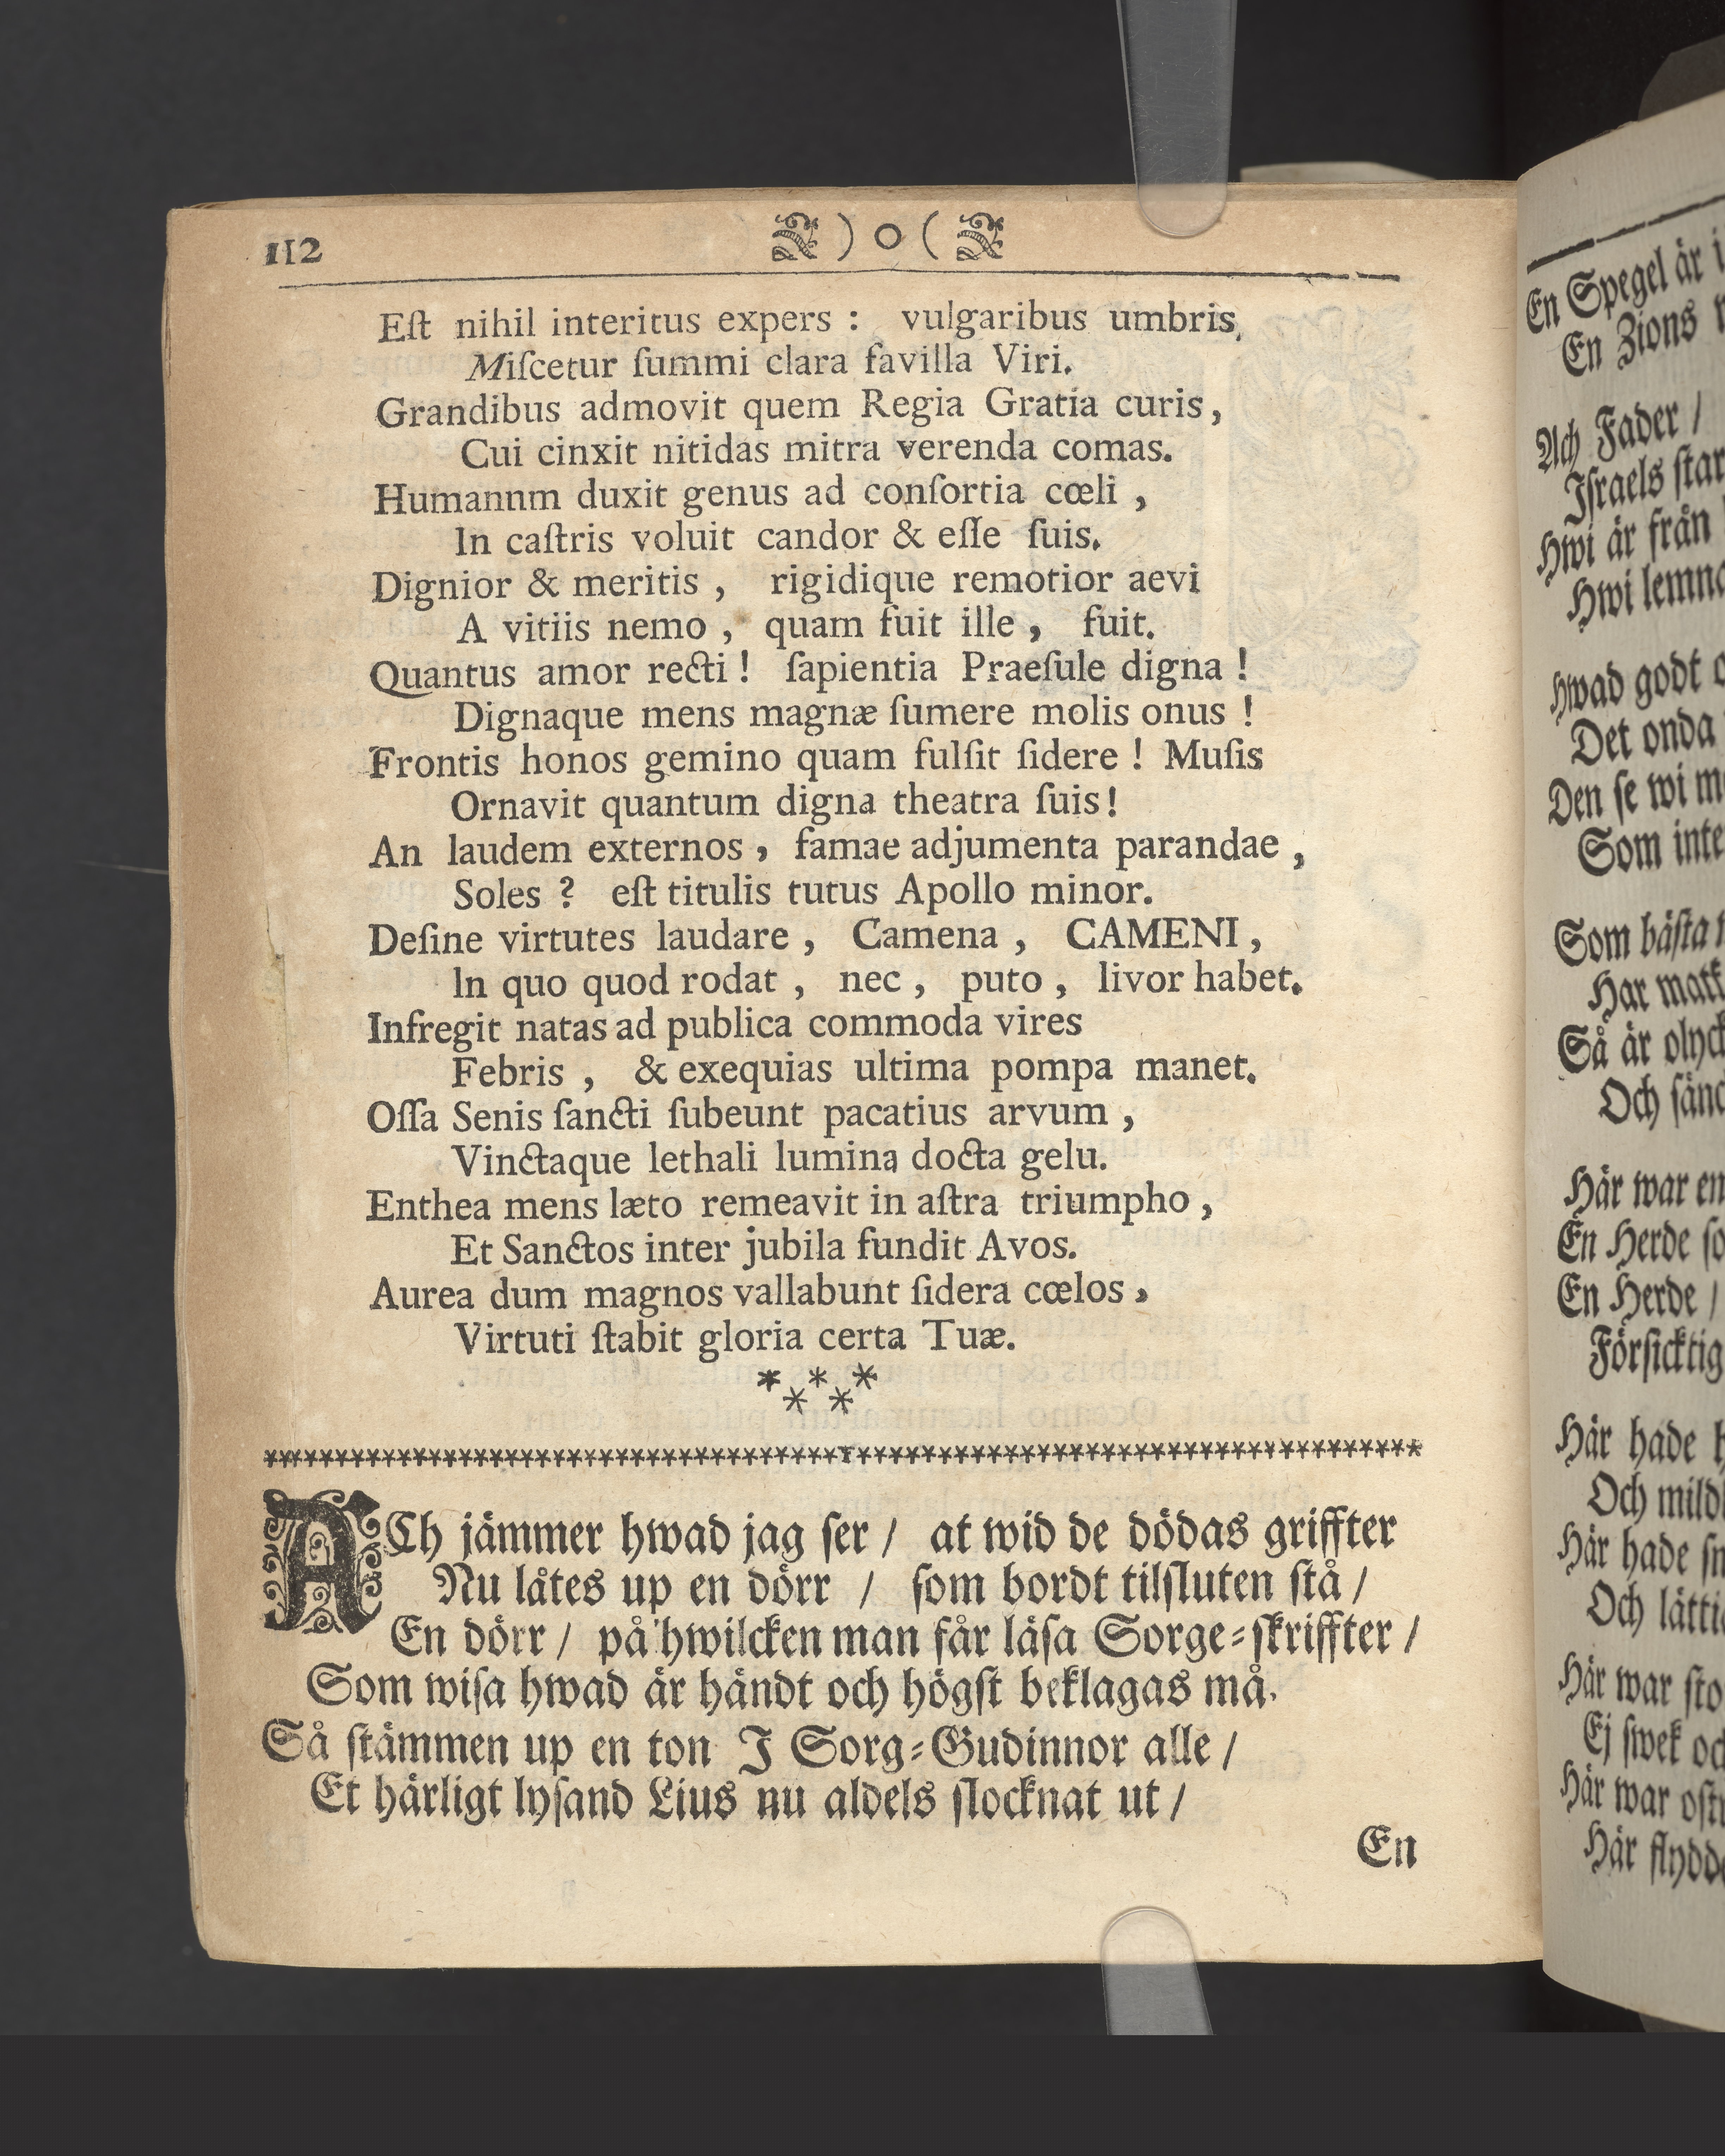 112 ) o (
Eſt nihil interitus expers : vulgaribus umbris,
Miſcetur ſummi clara favilla Viri.
Grandibus admovit quem Regia Gratia curis,
Cui cinxit nitidas mitra verenda comas.
Humannm duxit genus ad conſortia cœli ,
In caſtris voluit candor & eſſe ſuis.
Dignior & meritis , rigidique remotior aevi
A vitiis nemo , quam fuit ille , fuit.
Quantus amor recti ! ſapientia Praeſule digna !
Dignaque mens magnæ ſumere molis onus !
Frontis honos gemino quam fulſit ſidere ! Muſis
Ornavit quantum digna theatra ſuis!
An laudem externos , famae adjumenta parandae ,
Soles ? eſt titulis tutus Apollo minor.
Deſine virtutes laudare , Camena , CAMENI ,
ln quo quod rodat , nec , puto , livor habet.
Infregit natas ad publica commoda vires
Febris , & exequias ultima pompa manet.
Oſſa Senis ſancti ſubeunt pacatius arvum ,
Vinctaque lethali lumina docta gelu.
Enthea mens læto remeavit in aſtra triumpho ,
Et Sanctos inter jubila fundit Avos.
Aurea dum magnos vallabunt ſidera cœlos ,
Virtuti ſtabit gloria certa Tuæ.
* * *
* *
ACh jämmer hwad jag ſer / at wid de dödas griffter
Nu låtes up en dörr / ſom bordt tilſluten ſtå /
En dörr / på hwilcken man får läſa Sorge=ſkriffter /
Som wiſa hwad är händt och högſt beklagas må.
Så ſtämmen up en ton J Sorg=Gudinnor alle /
Et härligt lyſand Lius nu aldels ſlocknat ut /
En
En Spegel är i
En Zions
Ach Fader /
Jſraels ſtar
Hwi är från
Hwi lemna
Hwad godt
Det onda
Den ſe wi
Som inte
Som bäſta
Har matk
Så är olyck
Och ſänd
Här war en
En Herde ſo
En Herde /
Förſicktig
Här hade
Och mild
Här hade
Och lätti
Här war ſto
Ej ſwek oc
Här war oſt
Här flydd